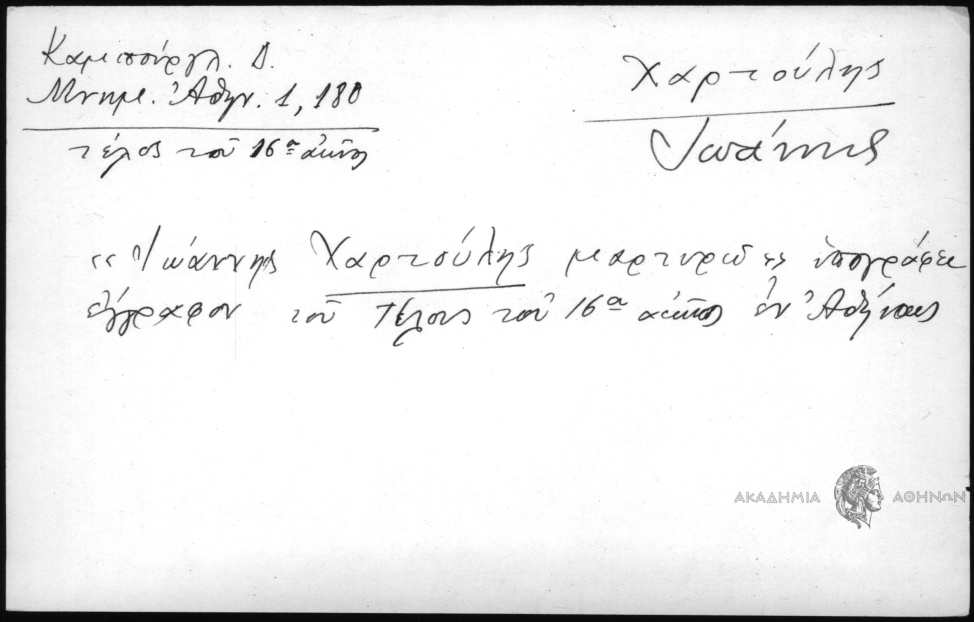 Καμπούργλ. Δ.
Μνημ. Ἀθην. 1, 180
τέλος τοῦ 16ου αἰῶνος
Χαρτούλης
Ἰωάννης
«Ἰωάννης Χαρτούλης μαρτυρῶ» ὑπογράφει
ἔγγραφον τοῦ τέλους τοῦ 16ου αἰῶνος ἐν Ἀθήναις
ΑΚΑΔΗΜΙΑ ΑΘΗΝΩΝ